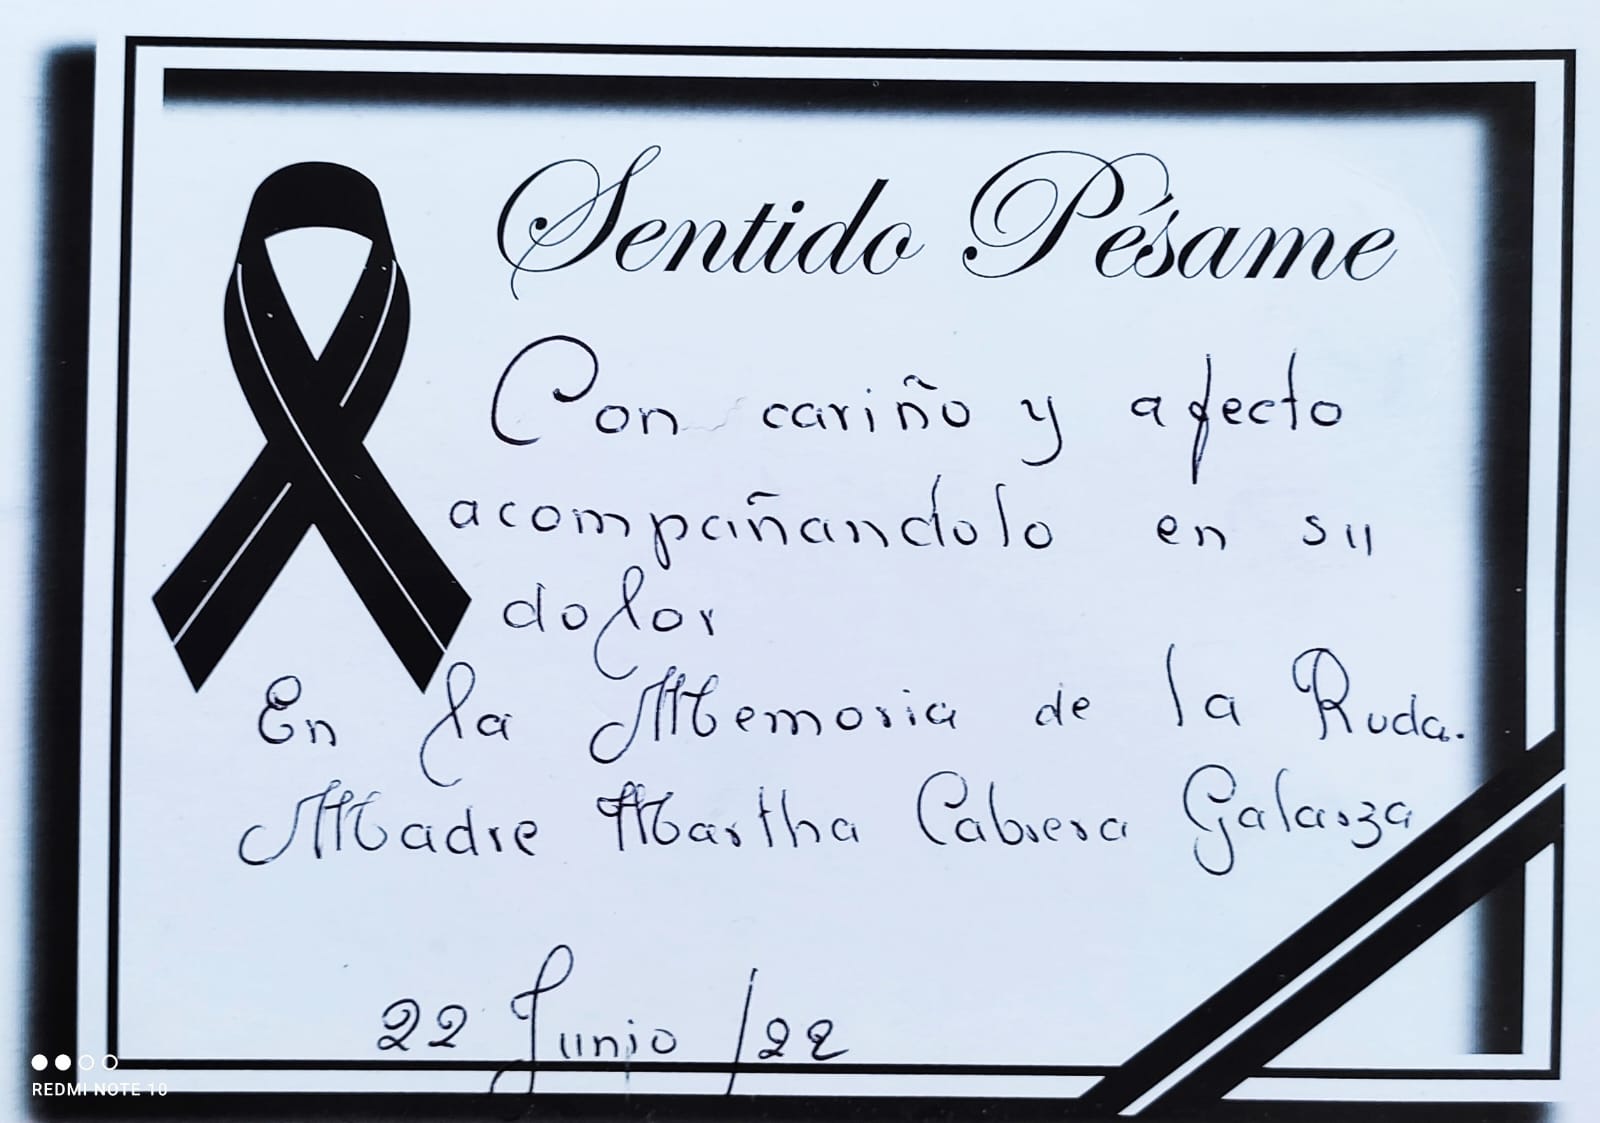 Sentido Pésame
Con cariño y afecto
acompañandolo en su
dolor
En la Memoria de la Ruda.
Madre Martha Cabrera Galarza
22 Junio /22
REDMI NOTE 10